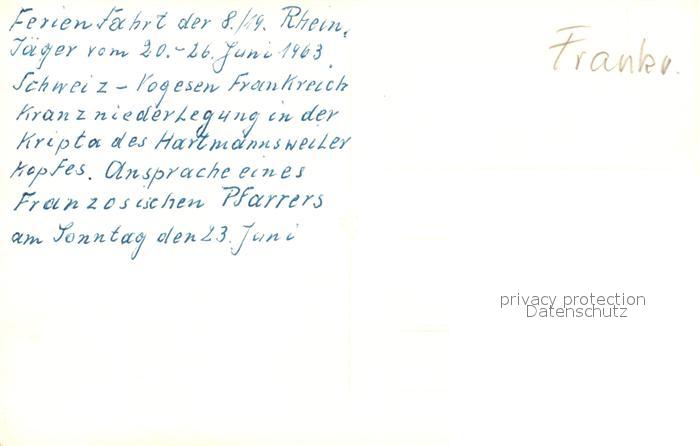 Ferien Fahrt der 8./19. Rhein.
Jäger vom 20.-26. Juni 1963.
Schweiz - Vogesen Frankreich
Kranzniederlegung in der
Kripta des Hartmannsweiler
Kopfes. Ansprache eines
Französischen Pfarrers
am Sonntag den 23. Juni
Frankr.
privacy protection
Datenschutz